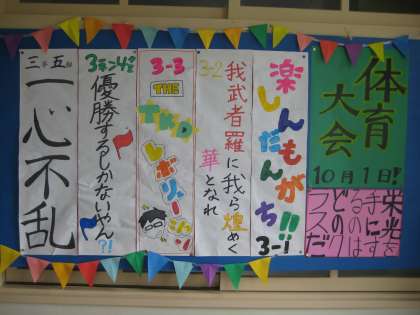 体育
大会
10月1日!
栄光を
手にす
るのは
どのク
ラスだ
楽しんだもんがち!!
3-1
3-2
我武者羅に我ら煌めく
華となれ
3-3
THE
TKD
レボリューション
優勝するしかないやん?!
三年五組
一心不乱